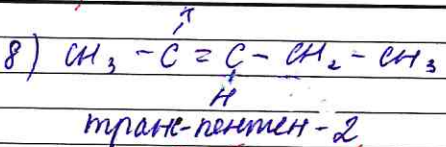 H
8) CH₃ - C = C - CH₂ - CH₃
H
транс-пентен-2